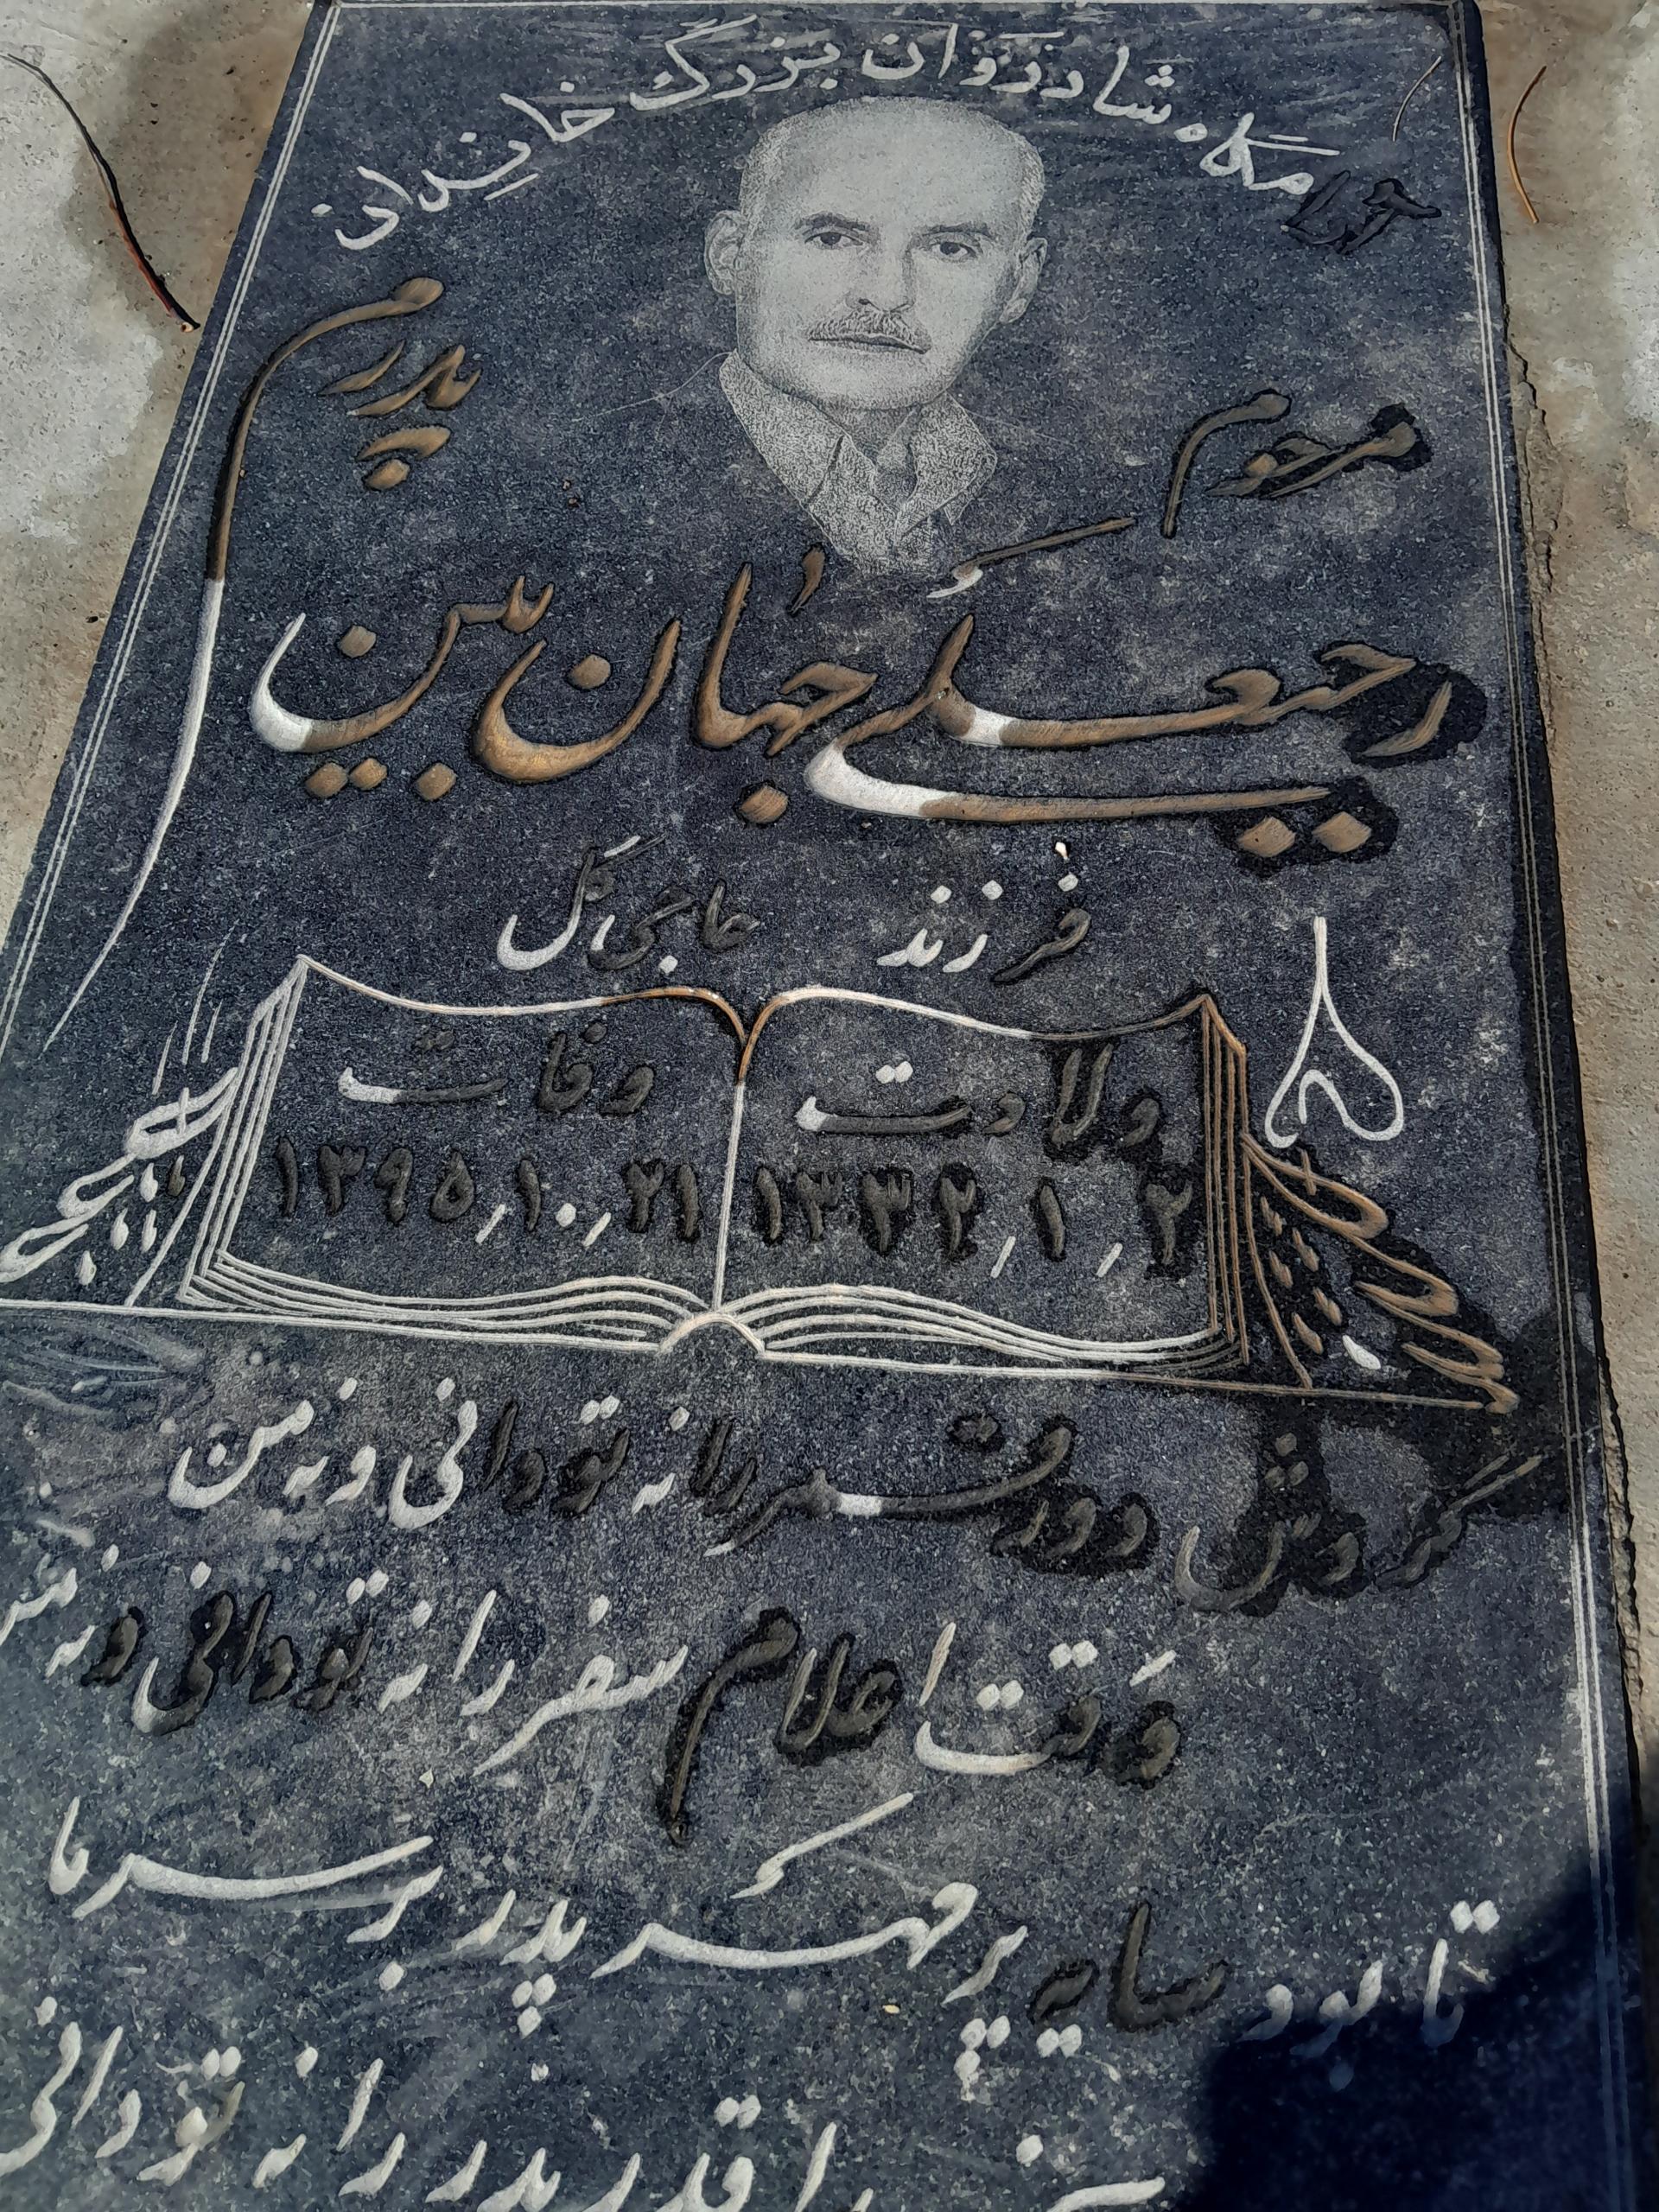 آرامگاه شادروان بزرگ خاندان
پدرم
مرحوم
رجبعلی جهان بین
فرزند حاجی گل
ولادت
۲/۱/۱۳۳۲
وفات
۲۱/۱۰/۱۳۹۵
گردش دور قمر را نه تو دانی و نه من
وقت اعلام سفر را نه تو دانی و نه
تا بود سایه پر مهر پدر بر سر ما
قدر پدر را نه تو دانی